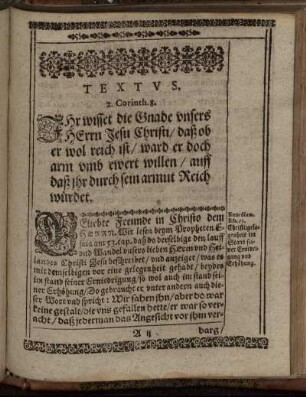 TEXTVS.
2. Corinth. 8.
IHr wisset die Gnade vnsers
HErrn Jesu Christi / daß ob
er wol reich ist / ward er doch
arm vmb ewert willen / auff
daß jhr durch sein armut Reich
würdet.
GEliebte Freunde in Christo dem
HERRN. Wir lesen beym Propheten E-
saia am 53. cap. daß do derselbige den lauff
vnd Wandel vnsers lieben HErrn vnd Hei-
landes Christi Jesu beschreibet / vnd anzeiget / was es
mit demselbigen vor eine gelegenheit gehabt / beydes
im stand seiner Ernidrigung / so wol auch im stand sei-
ner Erhöhung / Do gebraucht er vnter andern auch die-
ser Wort vnd spricht: Wir sahen ihn / aber do war
keine gestalt / die vns gefallen hette / er war so ver-
acht / daß jederman das Angesicht vor jhm ver-
A ij
barg /
Christi gele-
genheit im
Stand sei-
ner Ernidri-
gung vnd
Erhöhung.